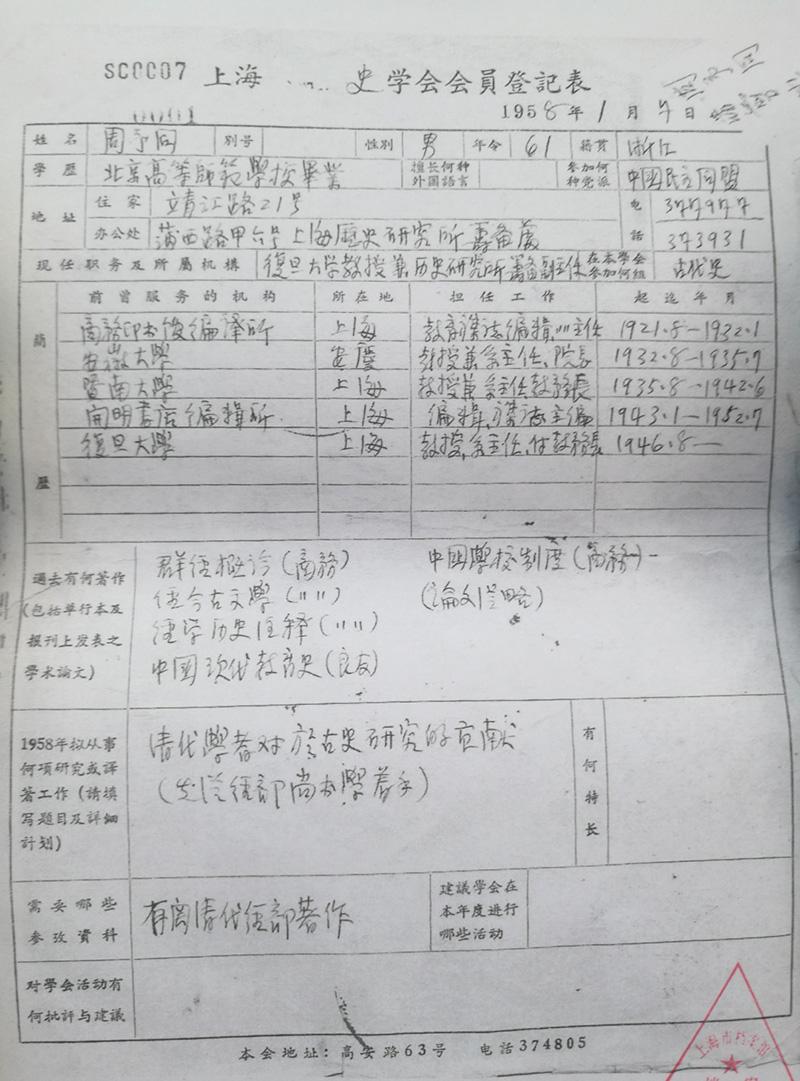 SC0007 上海 史学会会員登記表
0001
1958年1月7日
姓名 周予同 別号 性別 男 年令 61 籍貫 浙江
学歷 北京高等師範學校畢業 擅长何种外国語言 参加何种党派 中國民主同盟
地址 住家 靖江路21号 电話 377977
办公处 蒲西路甲六号上海歷史研究所籌备處 373931
現任职务及所屬机構 復旦大学教授兼历史研究所籌备副主任 在本学会参加何組 古代史
簡歷 前曾服务的机构 所在地 担任工作 起迄年月
商務印书馆編譯所 上海 教育雜誌編輯、主任 1921.8—1932.1
安徽大學 安慶 教授兼系主任、院長 1932.8—1935.7
暨南大學 上海 教授兼系主任教務長 1935.8—1942.6
開明書店編輯所 上海 編輯、雜誌主編 1943.1—1952.7
復旦大學 上海 教授、系主任、付教務長 1946.8—
過去有何著作(包括单行本及报刊上发表之学术論文)
群經概論(商務) 中國學校制度(商務)
經今古文學(〃〃) (論文從略)
經学历史注释(〃〃)
中國现代教育史(良友)
1958年拟从事何項研究或譯著工作(請填写題目及詳細計划)
清代學者对於古史研究的贡献
(先從經部尚书學着手)
有何特长
需要哪些参攷資料 有关清代經部著作
建議学会在本年度进行哪些活动
对學会活动有何批評与建議
本会地址:高安路63号 电話374805
上海市档案馆